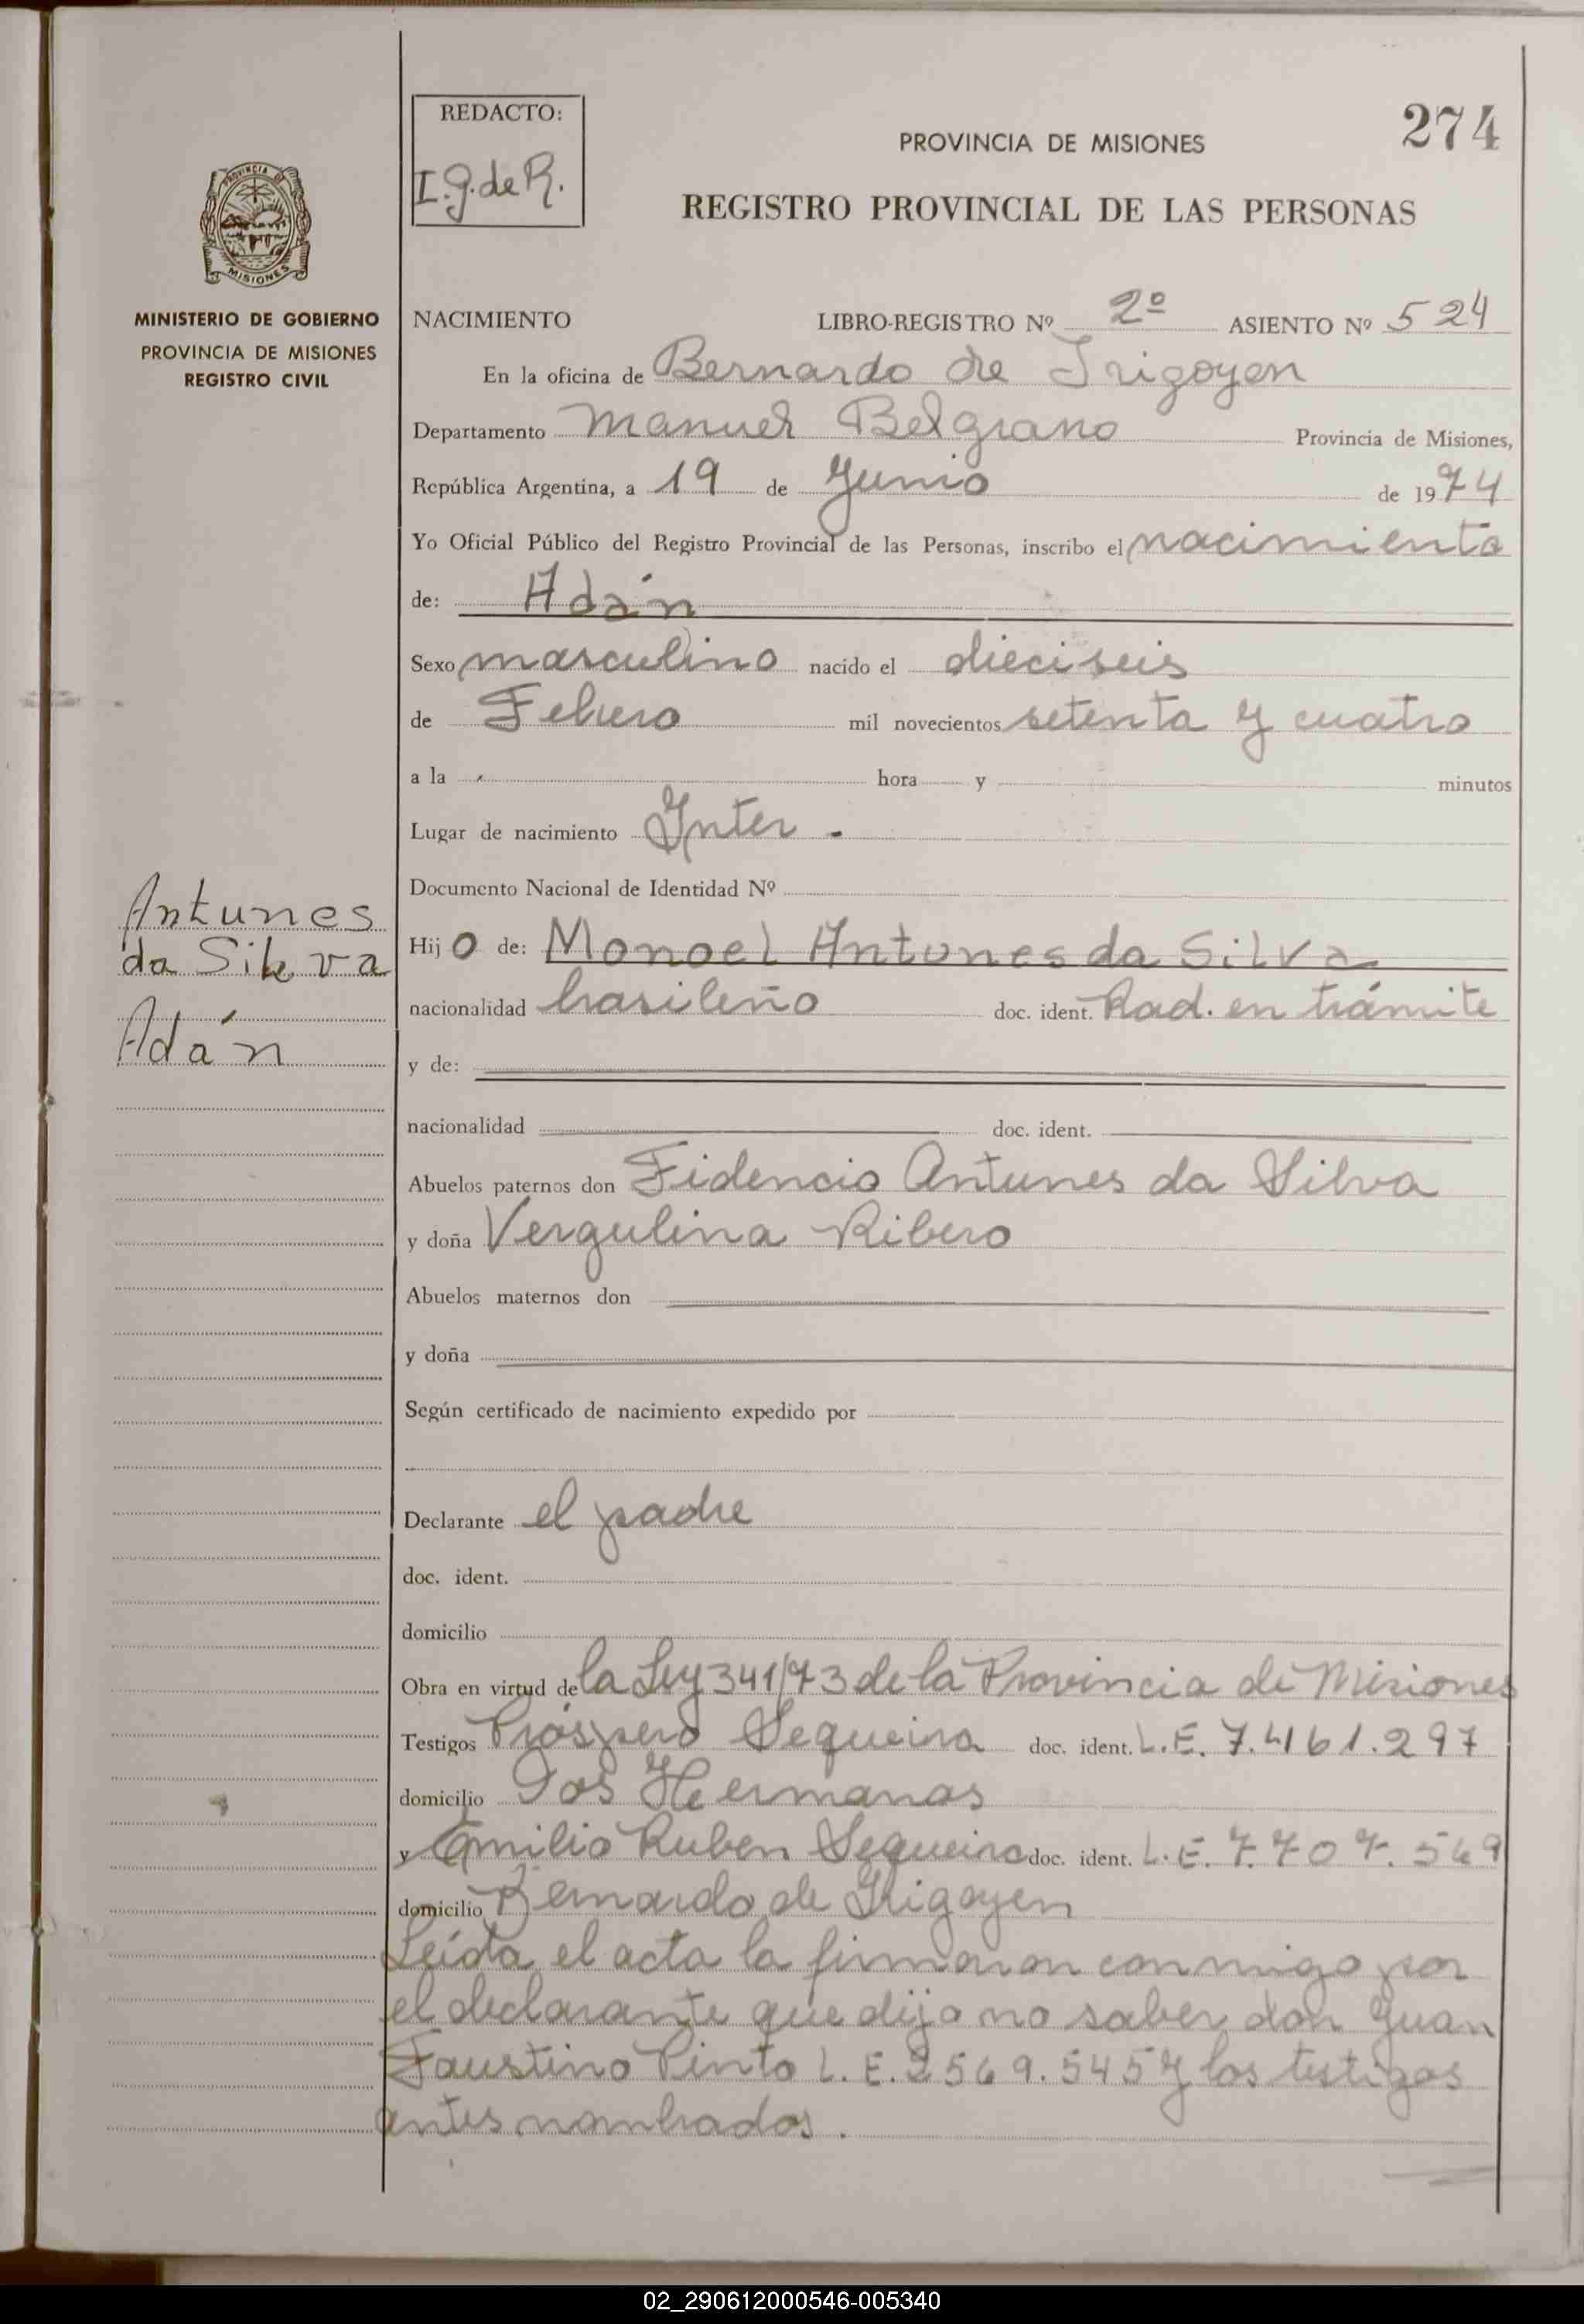 274
REDACTO:
I. g. de R.
PROVINCIA DE MISIONES
REGISTRO PROVINCIAL DE LAS PERSONAS
PROVINCIA DE
MISIONES
MINISTERIO DE GOBIERNO
PROVINCIA DE MISIONES
REGISTRO CIVIL
NACIMIENTO LIBRO-REGISTRO Nº 2º ASIENTO Nº 524
En la oficina de Bernardo de Irigoyen
Departamento Manuel Belgrano Provincia de Misiones,
República Argentina, a 19 de Junio de 1974
Yo Oficial Público del Registro Provincial de las Personas, inscribo el nacimiento
de: Adán
Sexo masculino nacido el dieciseis
de Febrero mil novecientos setenta y cuatro
a la hora y minutos
Lugar de nacimiento Inter.
Documento Nacional de Identidad Nº
Antunes
da Silva
Adán
Hijo de: Monoel Antunes da Silva
nacionalidad brasileño doc. ident. Rad. en trámite
y de:
nacionalidad doc. ident.
Abuelos paternos don Fidencio Antunes da Silva
y doña Vergulina Ribero
Abuelos maternos don
y doña
Según certificado de nacimiento expedido por
Declarante el padre
doc. ident.
domicilio
Obra en virtud de la Ley 341/73 de la Provincia de Misiones
Testigos Próspero Sequeira doc. ident. L.E. 7.461.297
domicilio Dos Hermanas
y Emilio Ruben Sequeira doc. ident. L.E. 7.707.569
domicilio Bernardo de Irigoyen
Leída el acta la firmaron conmigo por
el declarante que dijo no saber don Juan
Faustino Pinto L.E. 2569.545 y los testigos
antes nombrados.
02_290612000546-005340